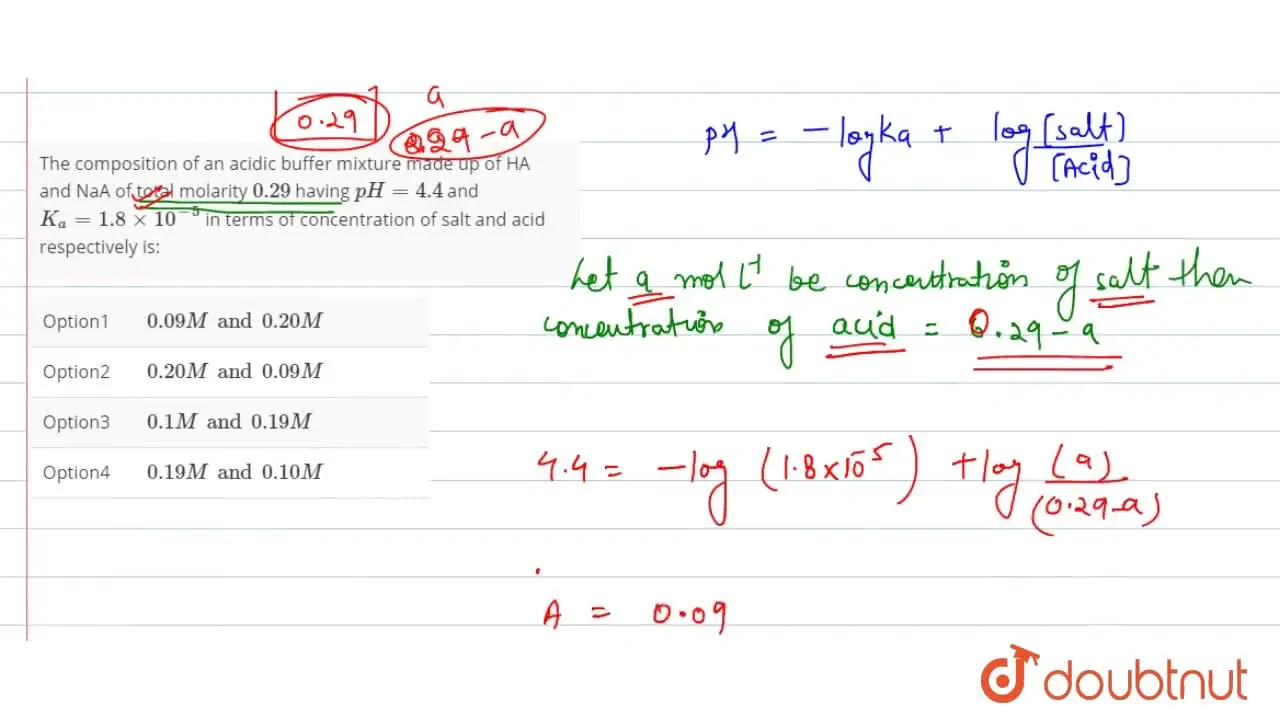 a
0.29
0.29-a
The composition of an acidic buffer mixture made up of HA
and NaA of total molarity 0.29 having pH = 4.4 and
Kₐ = 1.8 × 10⁻⁵ in terms of concentration of salt and acid
respectively is:
Option1 0.09M and 0.20M
Option2 0.20M and 0.09M
Option3 0.1M and 0.19M
Option4 0.19M and 0.10M
pH = - log Ka + log [salt]
[Acid]
Let a mol L⁻¹ be concentration of salt then
concentration of acid = 0.29-a
4.4 = -log (1.8×10⁻⁵) + log (a)
(0.29-a)
A = 0.09
doubtnut